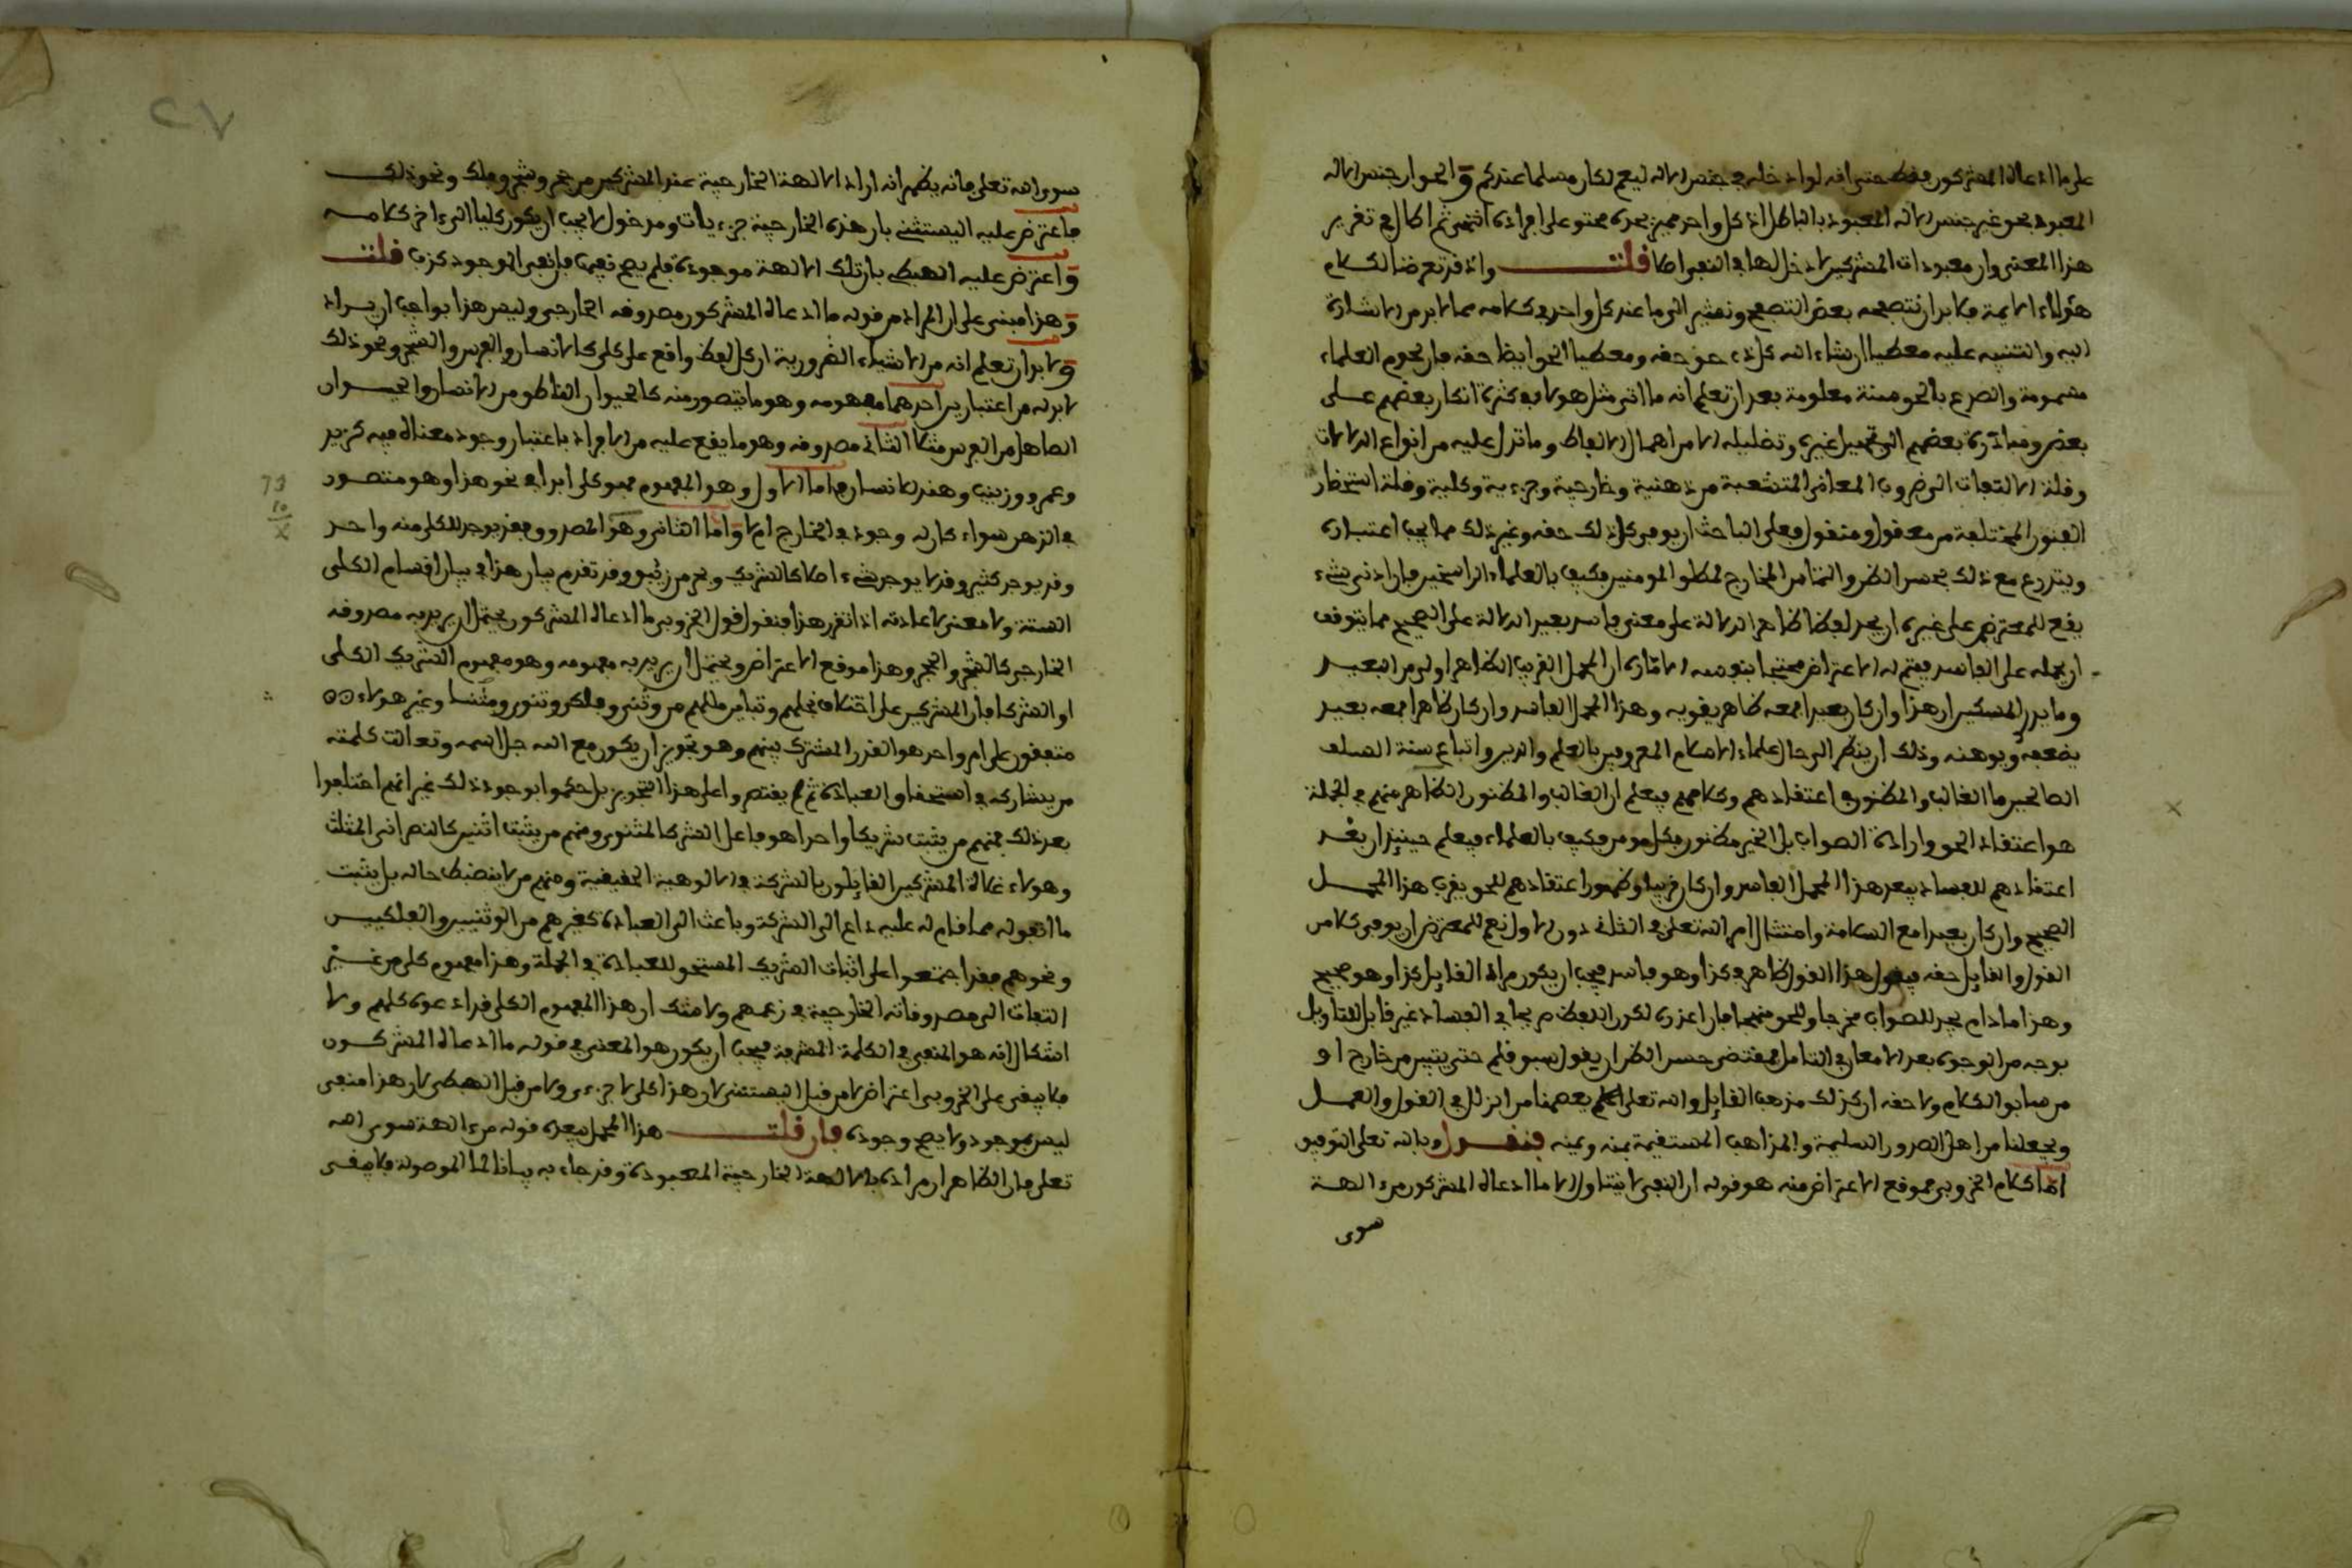 على ما ادعاه المشركون فقط حتى انه لو ادخله في جنس الاله ليعم لكان مسلما عندكم والحق ان جنس الاله
المعبود بحق غير جنس الاله المعبود بالباطل اذ كل واحد مميز بحده محتو على افراده انتهى ثم اطال في تقرير
هذا المعنى وان معبودات المشركين لا دخل لها في النفي اصلا قلت واذ قد تعرضنا لكلام
هؤلاء الايمة فلا بد ان نتصفحه بعض التصفح ونشير الى ما عند كل واحد في كلامه مما لا بد من الاشارة
اليه والتنبيه عليه معطيا ان شاء الله كل ذي حق حقه ومعطيا الحق ايضا حقه فان لحوم العلماء
مسمومة والصدع بالحق سنة معلومة بعد ان تعلم انه ما اتي مثل هولاء في كثرة انكار بعضهم على
بعض ومبادرة بعضهم الى تجهيل غيره وتضليله الا من اهمال الالفاظ وما تدل عليه من انواع الدلالات
وقلة الالتفات الى ضروب المعاني المتشعبة من ذهنية وخارجية وجزءية وكلية وقلة استحضار
الفنون المختلفة من معقول ومنقول فعلى الباحث ان يوفي كل ذلك حقه وغير ذلك مما يجب اعتباره
ويتدرع مع ذلك بحسن الظن والتماس المخارج لمطلق المومنين فكيف بالعلماء الراسخين فان ادنى شيء
يقع للمعترض على غيره ان يجد لفظا ظاهر الدلالة على معنى فاسد بعيد الدلالة على الصحيح مما يتوقف
ان يحمله على الفاسد فيتم له الاعتراض محتجا لنفسه الامارة ان المحمل القريب الظاهر اولى من البعيد
وما يدري المسكين ان هذا وان كان بعيدا فمعه ظاهر يقويه وهذا المحمل الفاسد وان كان ظاهرا فمعه بعيد
يضعفه ويوهنه وذلك ان ينظر الى حال علماء الاسلام المعروفين بالعلم والدين واتباع سنة السلف
الصالحين ما الغالب والمظنون في اعتقادهم وكلامهم فيعلم ان الغالب والمظنون الظاهر منهم في الجملة
هو اعتقاد الحق وارادة الصواب بل الخير مظنون بكل مومن فكيف بالعلماء فيعلم حينئذ ان بعد
اعتقادهم للفساد يبعد هذا المحمل الفاسد وان كان قريبا وظهور اعتقادهم للحق يقرب هذا المحمل
الصحيح وان كان بعيدا مع السلامة وامتثال امر الله تعلى في الثاني دون الاول نعم للمعترض ان يوفي كلا من
القول والقايل حقه فيقول هذا القول ظاهر في كذا وهو فاسد فيجب ان يكون مراد القايل كذا وهو صحيح
وهذا ما دام يجد للصواب مخرجا وللحق منهجا فان اعوزه لكون اللفظ صريحا في الفساد غير قابل للتاويل
بوجه من الوجوه بعد الامعان في التامل بمقتضى حسن الظن ان يقول سبق قلم حتى يتبين من خارج او
من سابق الكلام ولاحقه ان كذلك مذهب القايل والله تعلى اعلم يعصمنا من الزلل في القول والعمل
ويجعلنا من اهل الصدور السليمة والمذاهب المستقيمة بمنه ويمنه فنقول وبالله تعلى التوفيق
اما كلام الخروبي فموقع الاعتراض منه هو قوله ان النفي لا يتناول الا ما ادعاه المشركون من ءالهة
سوى
سوى الله تعلى فانه يظهر انه اراد الالهة الخارجية عند المشركين من حجر وشجر وملك ونحو ذلك
فاعترض عليه اليستثني بان هذه الخارجية جزءيات ومدخول لا يجب ان يكون كليا الى ءاخر كلامه
واعترض عليه الهبطي بان تلك الالهة موجودة فلم يصح نفيها فان نفي الموجود كذب قلت
وهذا مبني على ان المراد من قوله ما ادعاه المشركون مصدوقه الخارجي وليس هذا بواجب ان يراد
ولا بد ان تعلم انه من الاشياء الضرورية ان كل لفظ واقع على كلي كالانسان والفرس والشجر ونحو ذلك
لا بد له من اعتبارين احدهما مفهومه وهو ما يتصور منه كالحيوان الناطق من الانسان والحيوان
الصاهل من الفرس مثلا الثاني مصدوقه وهو ما يقع عليه من الافراد باعتبار وجود معناه فيه كزيد
وعمرو وزينب وهند للانسان فاما الاول وهو المفهوم فهو كلي ابدا في نحو هذا وهو متصور
في الذهن سواء كان له وجود في الخارج ام لا واما الثاني وهو المصدوق فقد يوجد للكلي منه واحد
وقد يوجد كثير وقد لا يوجد شيء اصلا كالشريك وبحر من زئبق وقد تقدم بيان هذا في بيان اقسام الكلي
الستة ولا معنى لاعادته اذا تقرر هذا فنقول قول الخروبي ما ادعاه المشركون يحتمل ان يريد به مصدوقه
الخارجي كالشجر والحجر وهذا موقع الاعتراض ويحتمل ان يريد به مفهومه وهو مفهوم الشريك الكلي
او الشركا فان المشركين على اختلاف نحلهم وتباين مللهم من وثني وفلكي وتنوي ومثلثا وغير هولاء
متفقون على امر واحد هو القدر المشترك بينهم وهو تجويز ان يكون مع الله جل اسمه وتعالت كلمته
من يشاركه في استحقاق العبادة ثم لم يقتصروا على هذا التجويز بل حكموا بوجود ذلك غير انهم اختلفوا
بعد ذلك فمنهم من يثبت شريكا واحدا هو فاعل الشر كالمثنوي ومنهم من يثبت اثنين كالنصراني المثلث
وهولاء غلاة المشركين القايلون بالشركة في الالوهية الحقيقية ومنهم من لا ينضبط حاله بل يثبت
ما اتفق له مما قام له عليه داع الى الشركة وباعث الى العبادة كغيرهم من الوثنيين والفلكيين
ونحوهم فقد اجتمعوا على اثبات الشريك المستحق للعبادة في الجملة وهذا مفهوم كلي من غير
التفات الى مصدوقاته الخارجية في زعمهم ولا شك ان هذا المفهوم الكلي قدر ادعوه كلهم ولا
اشكال انه هو المنفي في الكلمة المشرفة فيجب ان يكون هو المعني في قوله ما ادعاه المشركون
فلا يبقى على الخروبي اعتراض لا من قبل اليستثني لان هذا كلي لا جزءي ولا من قبل الهبطي لان هذا منفي
ليس بموجود ولا يصح وجوده فان قلت هذا المحمل يبعده قوله من ءالهة سوى الله
تعلى فان الظاهر ان مراده بالالهة الخارجية المعبودة وقد جاء به بيانا لما الموصولة فلا يبقى